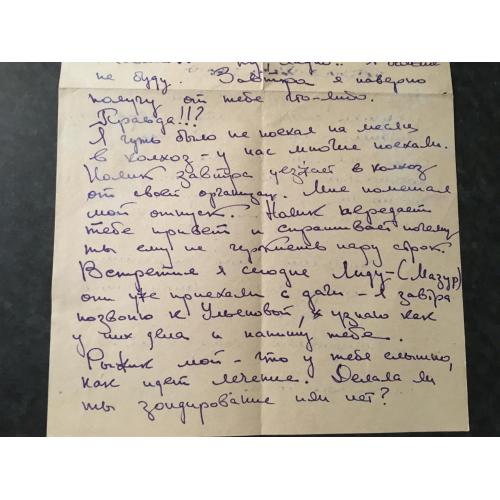 не буду. Завтра я наверно
получу от тебе что-либо.
Правда!!?
Я чуть было не поехал на месяц
в колхоз - у нас многие поехали.
Нолик завтра уезжает в колхоз
от своей организац. Мне помешал
мой отпуск. Нолик передает
тебе привет и спрашивает почему
ты ему не черкнешь пару строк.
Встретил я сегодня Лиду-(Мазур)
они уже приехали с дачи - я завтра
позвоню к Ульевой, и узнаю как
у них дела и напишу тебе.
Рыжик мой - что у тебе слышно,
как идет лечение. Делала ли
ты зондирование или нет?